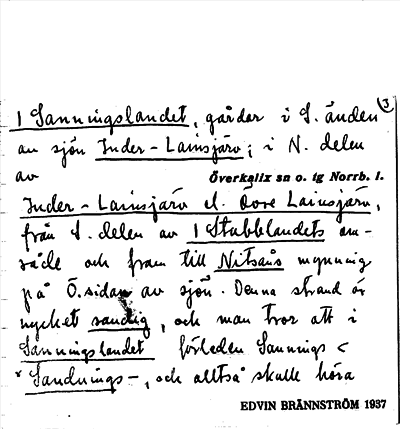 3
1 Sanningslandet, gårdar i S. änden
av sjön Inder-Lainsjärv; i N. delen
av Överkalix sn o. tg Norrb. l.
Inder-Lainsjärv el. Övre Lainsjärv,
från S. delen av 1 Stabblandets om-
råde och fram till Nitsaås mynning
på Ö.sidan av sjön. Denna strand är
mycket sandig, och man tror att i
Sanningslandet förleden Sannings <
* Sandnings-, och alltså skulle höra
EDVIN BRÄNNSTRÖM 1937